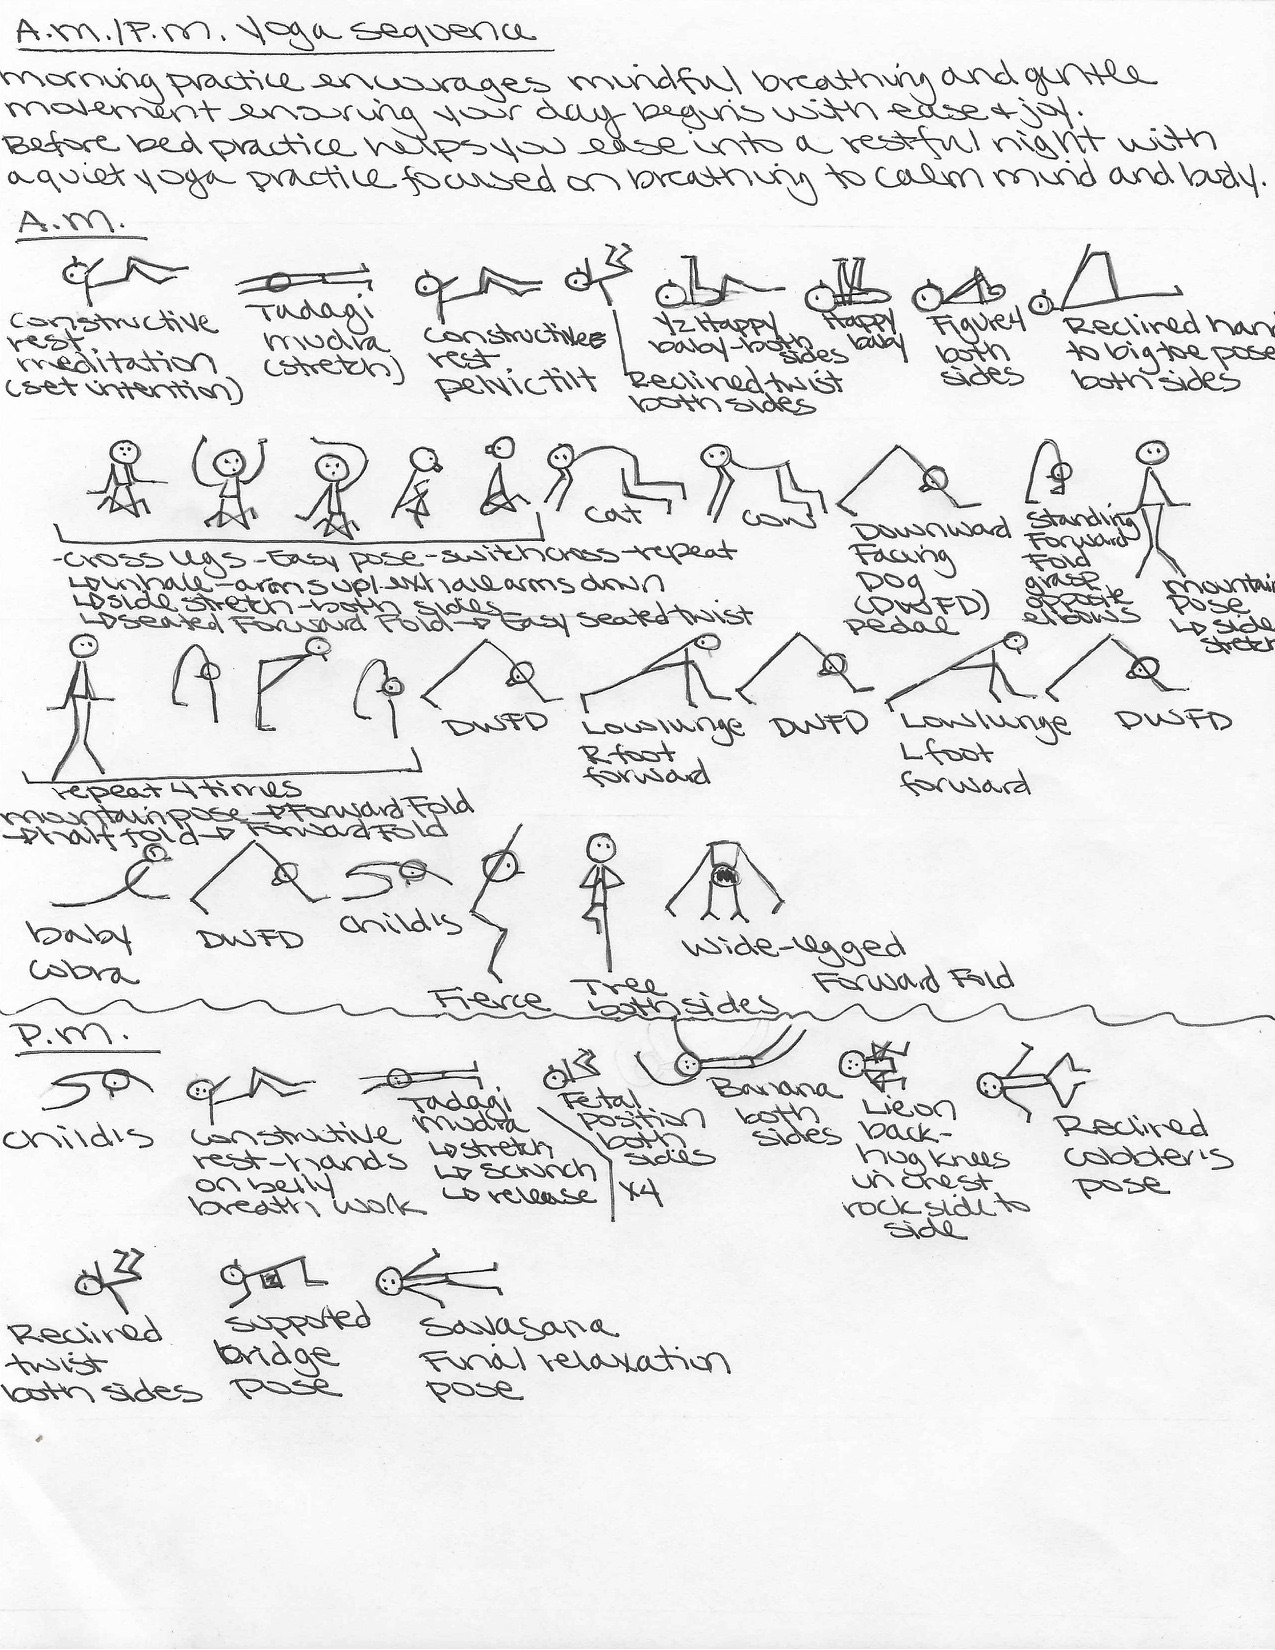 A.M./P.M. Yoga sequence
morning practice encourages mindful breathing and gentle
movement ensuring your day begins with ease + joy.
Before bed practice helps you ease into a restful night with
a quiet yoga practice focused on breathing to calm mind and body.
A.M.
constructive
rest
meditation
(set intention)
Tadagi
mudra
(stretch)
constructive
rest
pelvic tilt
Reclined twist
both sides
1/2 Happy
baby-both
sides
Happy
baby
Figure 4
both
sides
Reclined han
to big toe pose
both sides
-cross legs -Easy pose -switch cross -repeat
↳inhale -arms up/-exhale arms down
↳side stretch -both sides
↳seated Forward Fold → Easy seated twist
cat
cow
Downward
Facing
Dog
(DWFD)
pedal
Standing
Forward
Fold
grasp
opposite
elbows
mountain
pose
↳ side
stretch
repeat 4 times
mountain pose → Forward Fold
→ half fold → Forward Fold
DWFD
Low lunge
R foot
forward
DWFD
Low lunge
L foot
forward
DWFD
baby
cobra
DWFD
child's
Fierce
Tree
both sides
Wide-legged
Forward Fold
P.M.
child's
constructive
rest-hands
on belly
breath work
Tadagi
mudra
↳stretch
↳ scrunch
↳ release
x4
Fetal
position
both
sides
Banana
both
sides
Lie on
back-
hug knees
in chest
rock side to
side
Reclined
cobbler's
pose
Reclined
twist
both sides
supported
bridge
pose
Savasana
Final relaxation
pose